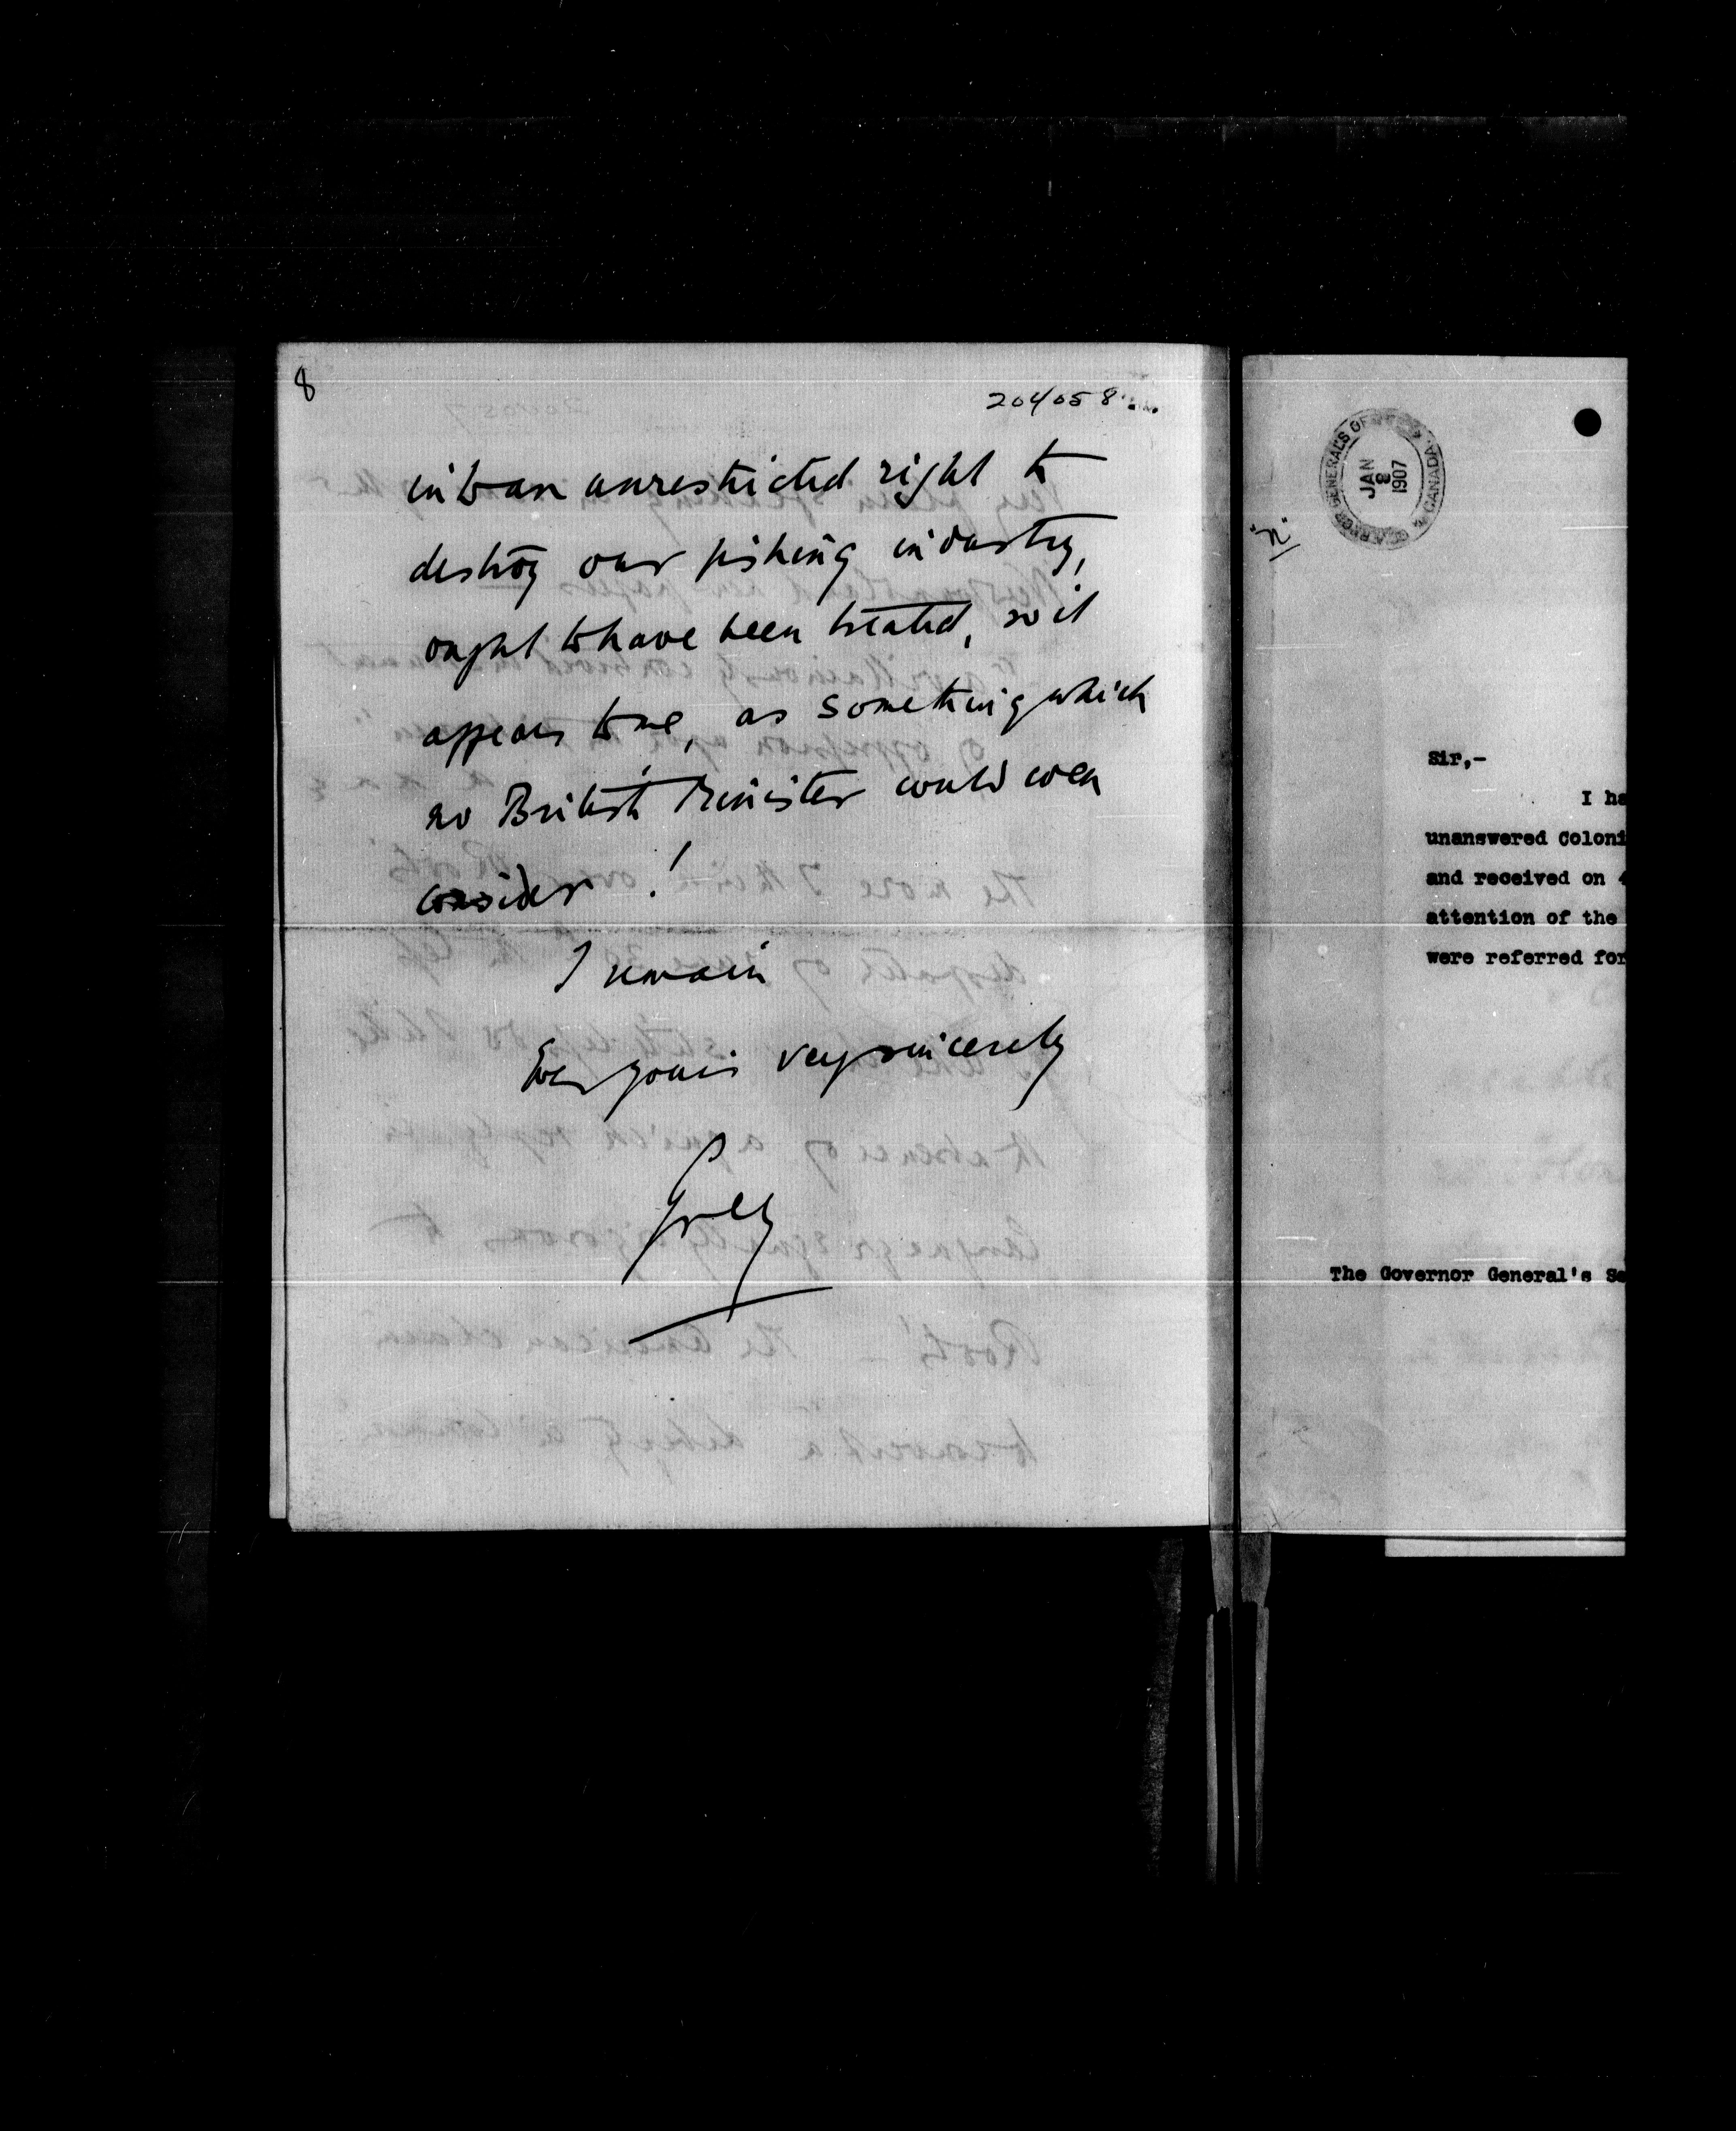 8
204058
into an unrestricted right to
destroy our fishing industry,
ought to have been treated, so it
appears to me, as something which
no British Minister could even
consider !
I remain
Ever yours very sincerely
Grey
GOVERNOR GENERAL'S OF
CANADA
JAN
8
1907
"n"
Sir,-
I ha
unanswered Coloni
and received on 4
attention of the
were referred for
The Governor General's Se